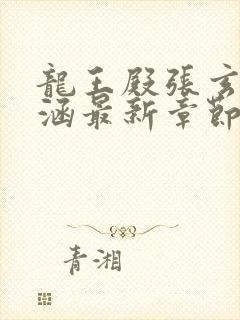 龍王殿張玄
涵最新章節
青湘